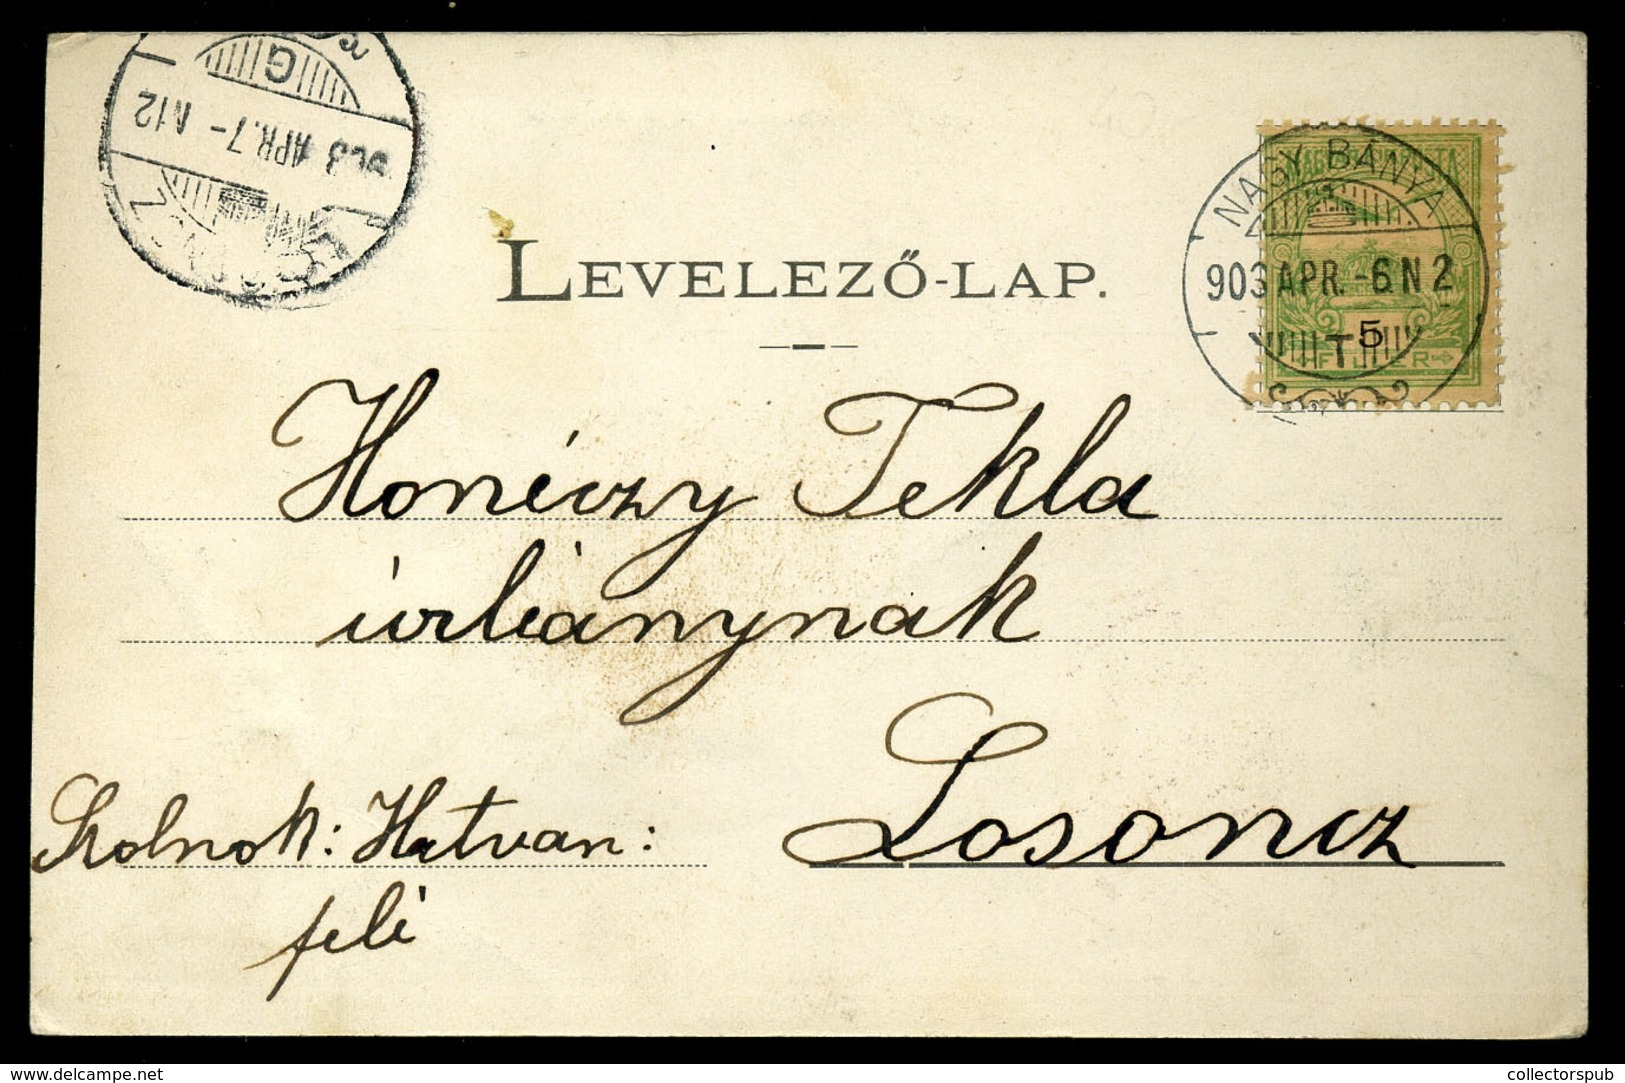 G
903 APR. 7- N12
LOSONCZ
LEVELEZŐ-LAP.
MAGYAR POSTA
NAGY-BÁNYA
903 APR. -6 N 2
5
T
FILLÉR
Honéczy Tekla
úrleánynak
Losoncz
Szolnok: Hatvan:
felé
www.delcampe.net
collectorspub